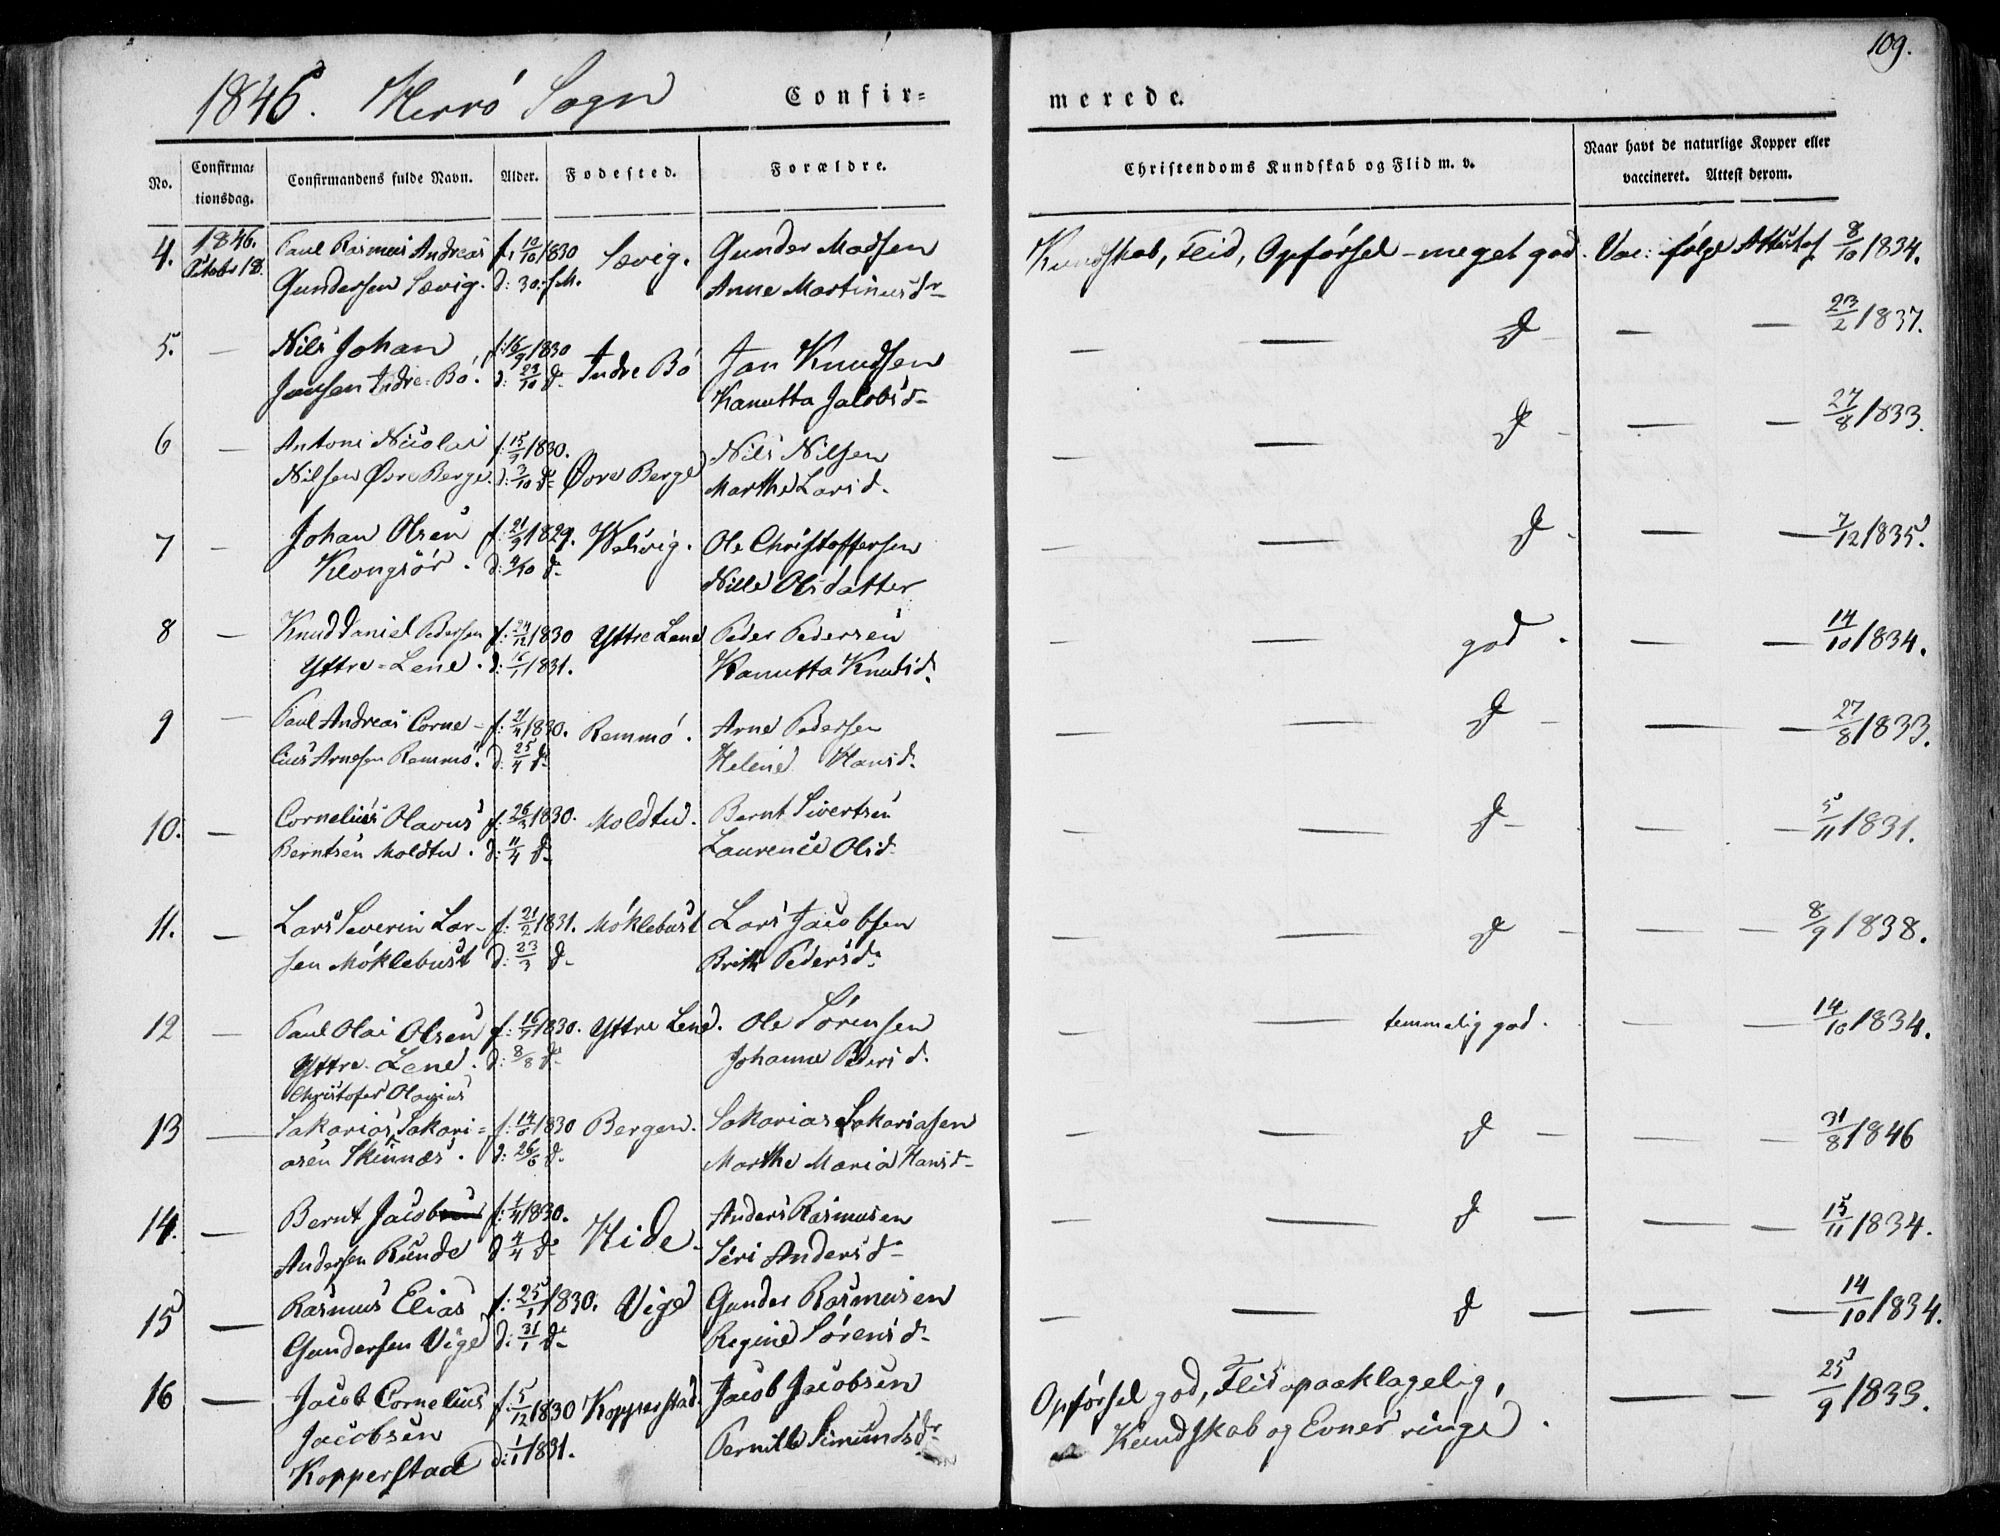 109.
1846. Herrö Sogn Confir=
merede.
No. Confirma=tionsdag. Confirmandens fulde Navn. Alder. Fødested. Forældre.
Christendoms Kundskab og Flid m. v. Naar havt de naturlige Kopper eller vaccineret. Attest derom.
4. 1846. Paul Rasmus Andreas f. 12/10 1830 Sævig. Gunder Madsen Kundskab, Flid, Opførsel - meget god. Vac: følge Attest af 8/10 1834.
Octobr 18. Gundersen Sævig. d: 30. s. M. Anne Martinusdr
5. — Nils Johan f: 16/9 1830 Indre Bö Jan Knudsen — — d — — 23/2 1837.
Jansen Indre-Bö. d: 23/10 d Kanutta Jakobsd
6 — Antoni Nicolai f: 15/9 1830. Nils Nilsen — — d — — 27/8 1833.
Nilsen Øvre Berge. d: 3/10 d Øvre Berge Marthe Larsd.
7 — Johan Olsen f: 21/9 1829. Wasvig. Ole Christoffersen — — d — — 7/12 1835.
Klongsör. d: 4/10 d Nille Olsdatter
8 — Knud Daniel Pedersen f: 24/12 1830 Yttre Lene Peder Pedersen — — god. — — 14/10 1834.
Yttre-Lene. d: 16/1 1831. Kanutta Knudsd.
9 — Paul Andreas Corne- f: 21/4 1830. Remmö. Arne Pedersen — — d — — 27/8 1833.
lius Arnesen Remmö. d: 25/4 d Helene Hansd.
10. — Cornelius Olavus f: 26/2 1830. Moldtu. Bernt Sivertsen — — d — — 5/11 1831.
Berntsen Moldtu. d: 11/4 d Laurence Olsd
11. — Lars Severin Lar- f: 21/2 1831. Möklebust Lars Jacobsen — — d — — 8/9 1838.
sen Möklebust d: 23/3 d Brithe Pedersd
12 — Paul Olai Olsen f: 16/7 1830. Yttre Lene. Ole Sørensen — — temmelig god. — — 14/10 1834.
Yttre-Lene. d: 8/8 d Johanne Persd.
Christofer Olagius
13 — Sakarias Sakari= f: 14/6 1830 Bergen. Sakarias Sakariasen — — d — — 31/8 1846
asen Skinnæs. d: 26/6 d Marthe Maria Hansd
14. — Bernt Jacob f: 1/4 1830. Hide. Anders Rasmusen — — d — — 15/11 1834.
Andersen Runde d 4/4 d Siri Andersd
15 — Rasmus Elias f: 25/1 1830. Vige Gunder Rasmusen — — d — — 14/10 1834.
Gundersen Vige d: 31/1 d Regine Sörensd
16 — Jacob Cornelius f. 5/12 1830 Kopperstad Jacob Jacobsen Opførsel god, Flid upaaklagelig, — — 25/9 1833.
Jacobsen Pernille Simundsdr Kundskab og Evner ringe.
Kopperstad d: 1/1 1831.